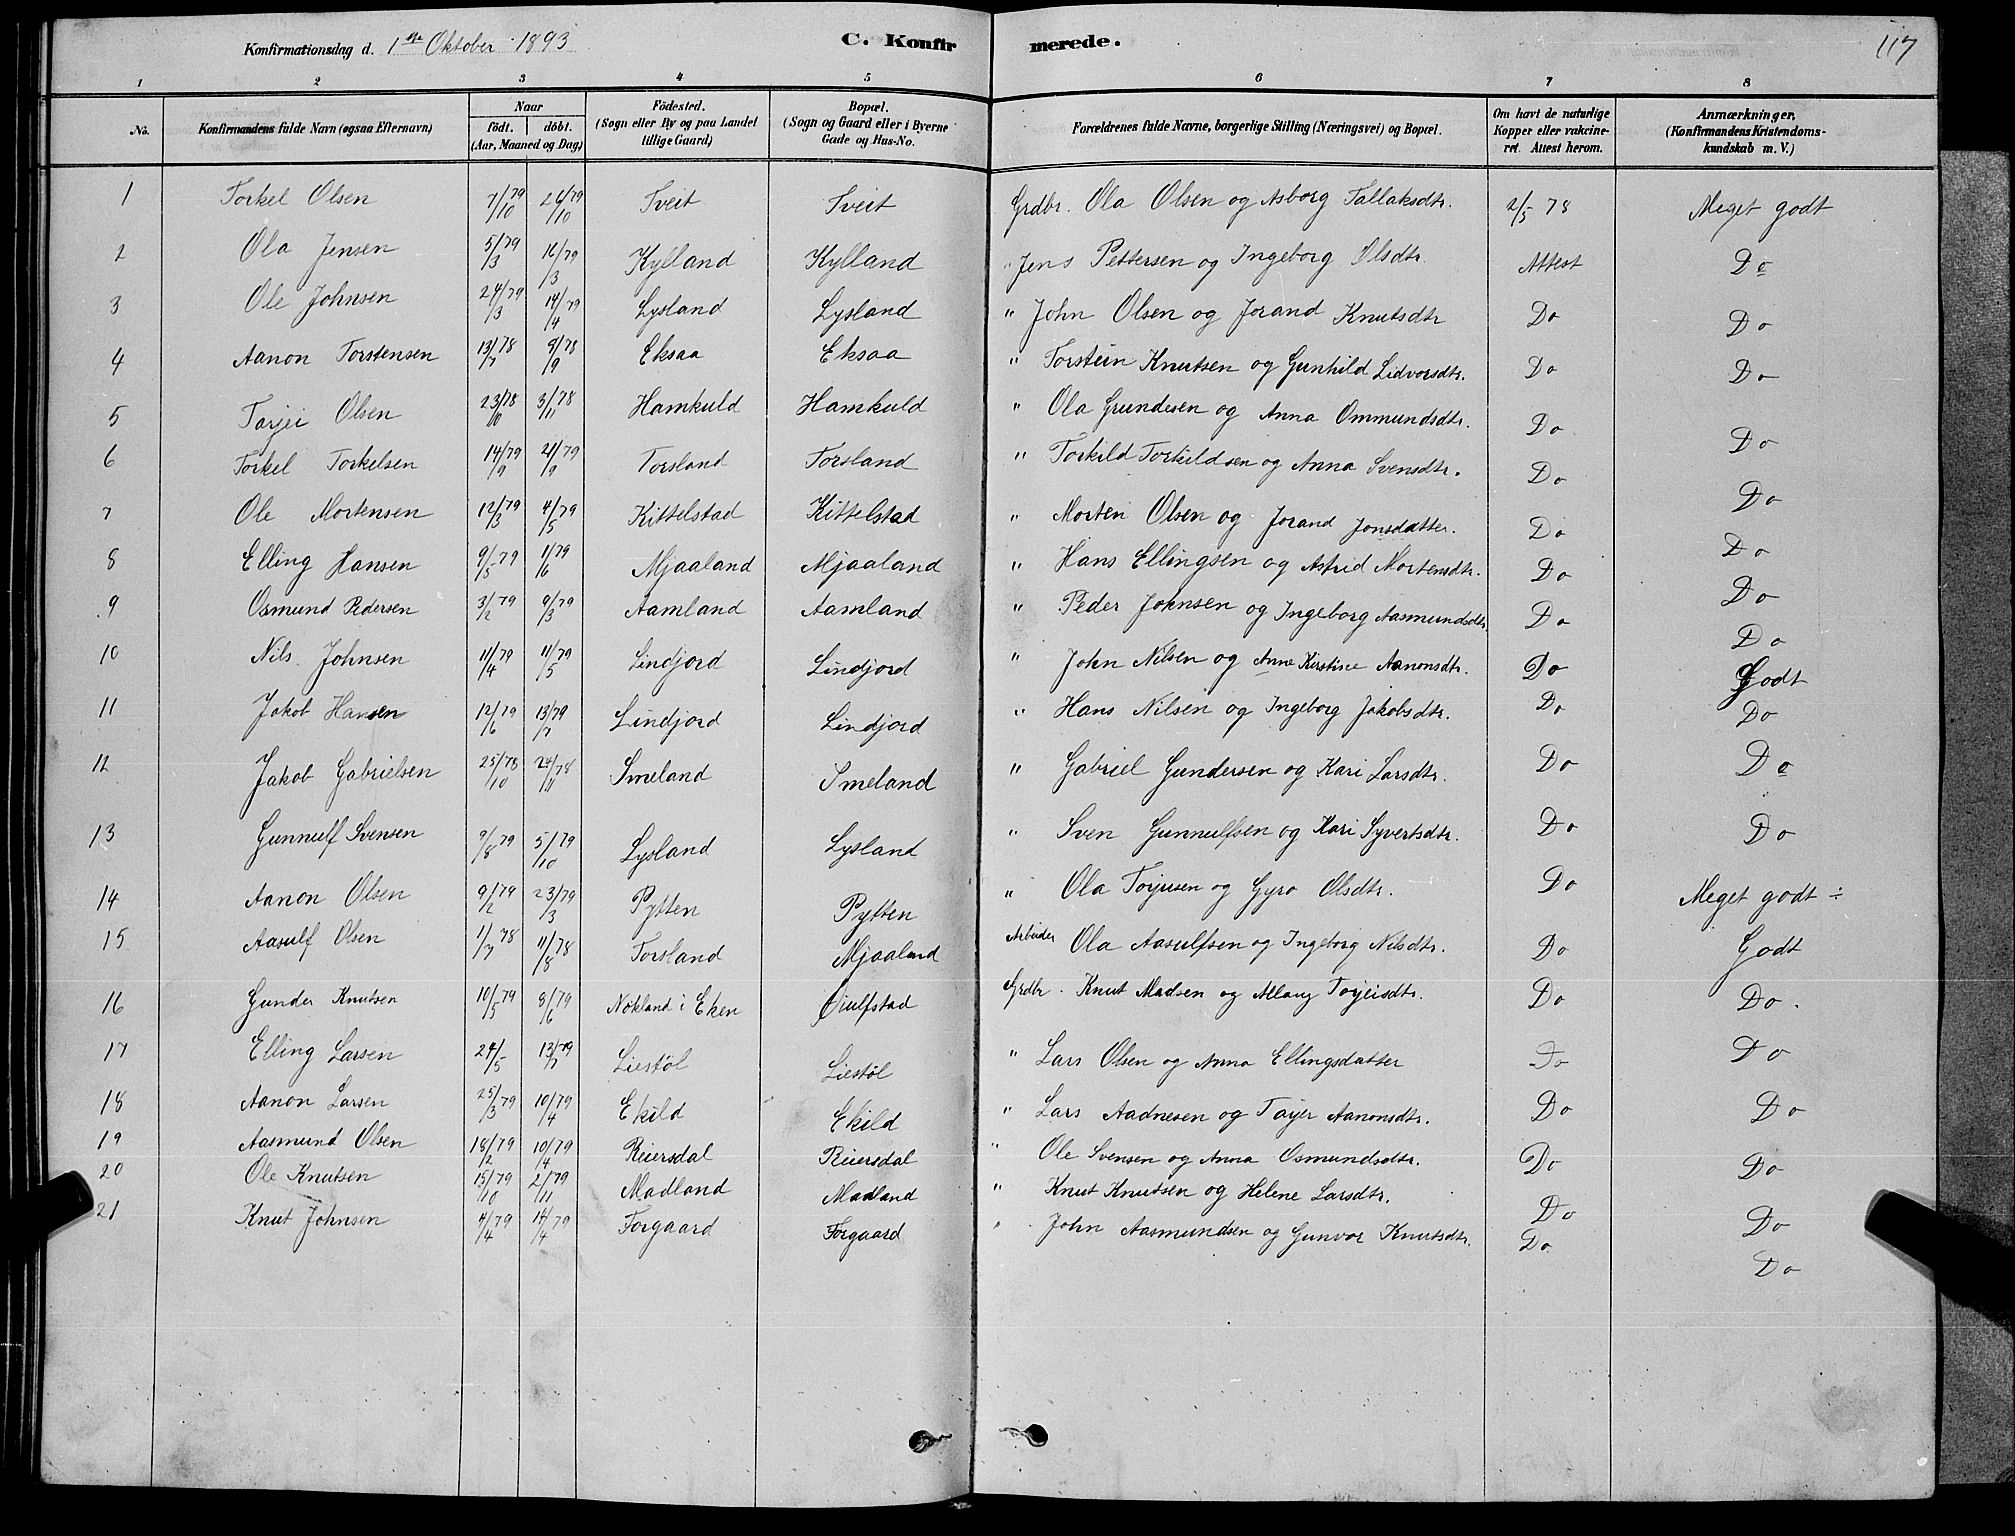 Konfirmationsdag d. 1ste Oktober 1893 C. Konfirmerede. 117
1 2 3 4 5 6 7 8
No. Konfirmandens fulde Navn (ogsaa Efternavn) Naar födt. döbt. (Aar, Maaned og Dag) Födested. (Sogn eller By og paa Landet tillige Gaard) Bopæl. (Sogn og Gaard eller i Byerne Gade og Hus-No. Forældrenes fulde Navne, borgerlige Stilling (Næringsvei) og Bopæl. Om havt de naturlige Kopper eller vakcineret. Attest herom. Anmærkninger. (Konfirmandens Kristendomskundskab m. V.)
1 Torkel Olsen 7/10 79 26/10 79 Tveit Tveit Grdbr. Ola Olsen og Asborg Tallaksdtr. 2/5 78 Meget godt
2 Ola Jensen 5/3 79 16/3 79 Kylland Kylland " Jens Pettersen og Ingeborg Olsdtr. Attest Do
3 Ole Johnsen 24/3 79 14/4 79 Lysland Lysland " John Olsen og Jorand Knutsdtr Do Do
4 Aanon Torstensen 13/7 78 9/9 78 Eksaa Eksaa " Torstein Knutsen og Gunhild Lidvorsdtr. Do Do
5 Tarjei Olsen 23/10 78 3/11 78 Hamkuld Hamkuld " Ola Grundesen og Anna Ommundsdtr. Do Do
6 Torkel Torkelsen 14/9 79 21/9 79 Torsland Torsland " Torkild Torkildsen og Anna Svensdtr. Do Do
7 Ole Mortensen 12/3 79 4/5 79 Kittelstad Kittelstad " Morten Olsen og Jorand Jonsdatter. Do Do
8 Elling Hansen 9/5 79 1/6 79 Mjaaland Mjaaland " Hans Ellingsen og Astrid Mortensdtr. Do Do
9 Osmund Pedersen 3/2 79 9/3 79 Aamland Aamland " Peder Johnsen og Ingeborg Aasmundsdtr. Do Do
10 Nils Johnsen 11/4 79 11/5 79 Lindjord Lindjord " John Nilsen og Anne Kirstine Aanonsdtr. Do Godt
11 Jakob Hansen 12/6 79 13/7 79 Lindjord Lindjord " Hans Nilsen og Ingeborg Jakobsdtr. Do Do
12 Jakob Gabrielsen 25/10 78 24/11 78 Smeland Smeland " Gabriel Gundersen og Kari Larsdtr. Do Do
13 Gunnulf Svensen 9/8 79 5/10 79 Lysland Lysland " Sven Gunnulfsen og Kari Syvertsdtr. Do Do
14 Aanon Olsen 9/2 79 23/3 79 Pytten Pytten " Ola Torjusen og Gyro Olsdtr. Do Meget godt ÷
15 Aasulf Olsen 1/7 78 11/8 78 Torsland Mjaaland Arbeider Ola Aasulfsen og Ingeborg Nilsdtr. Do Godt
16 Gunder Knutsen 10/5 79 8/6 79 Nökland i Eken Öiulfstad Grdbr. Knut Madsen og Allaug Torjeisdtr. Do Do.
17 Elling Larsen 24/5 13/7 79 Liestöl Liestöl " Lars Olsen og Anna Ellingsdatter Do Do
18 Aanon Larsen 25/3 79 10/4 79 Ekild Ekild " Lars Aadnesen og Tarjer Aanonsdtr. Do Do
19 Aasmund Olsen 18/2 79 10/4 79 Reiersdal Reiersdal " Ole Svensen og Anna Osmundsdtr. Do Do
20 Ole Knutsen 15/10 79 2/11 79 Madland Madland " Knut Knutsen og Helene Larsdtr. Do Do
21 Knut Johnsen 4/4 79 14/4 79 Forgaard Forgaard " John Aasmundsen og Gunvor Knutsdtr. Do Do